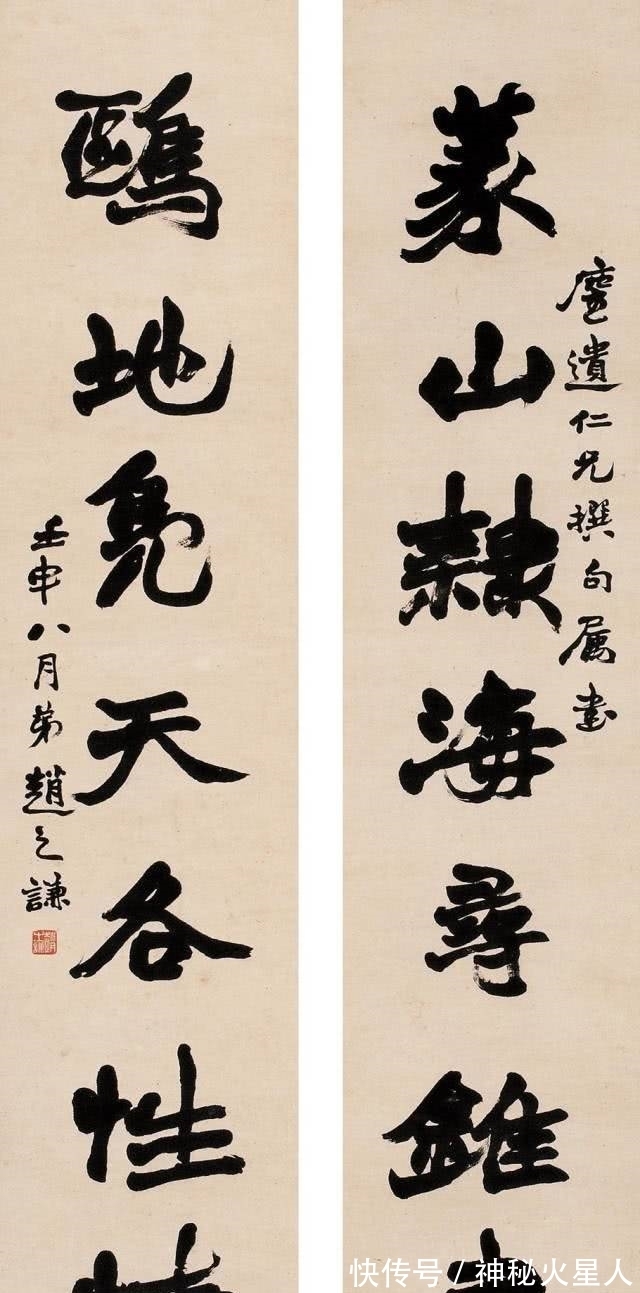 遺仁兄撰句属書
篆山隸海尋錐
鷗地鳧天各性情
壬申八月弟趙之謙
快传号 / 神秘火星人